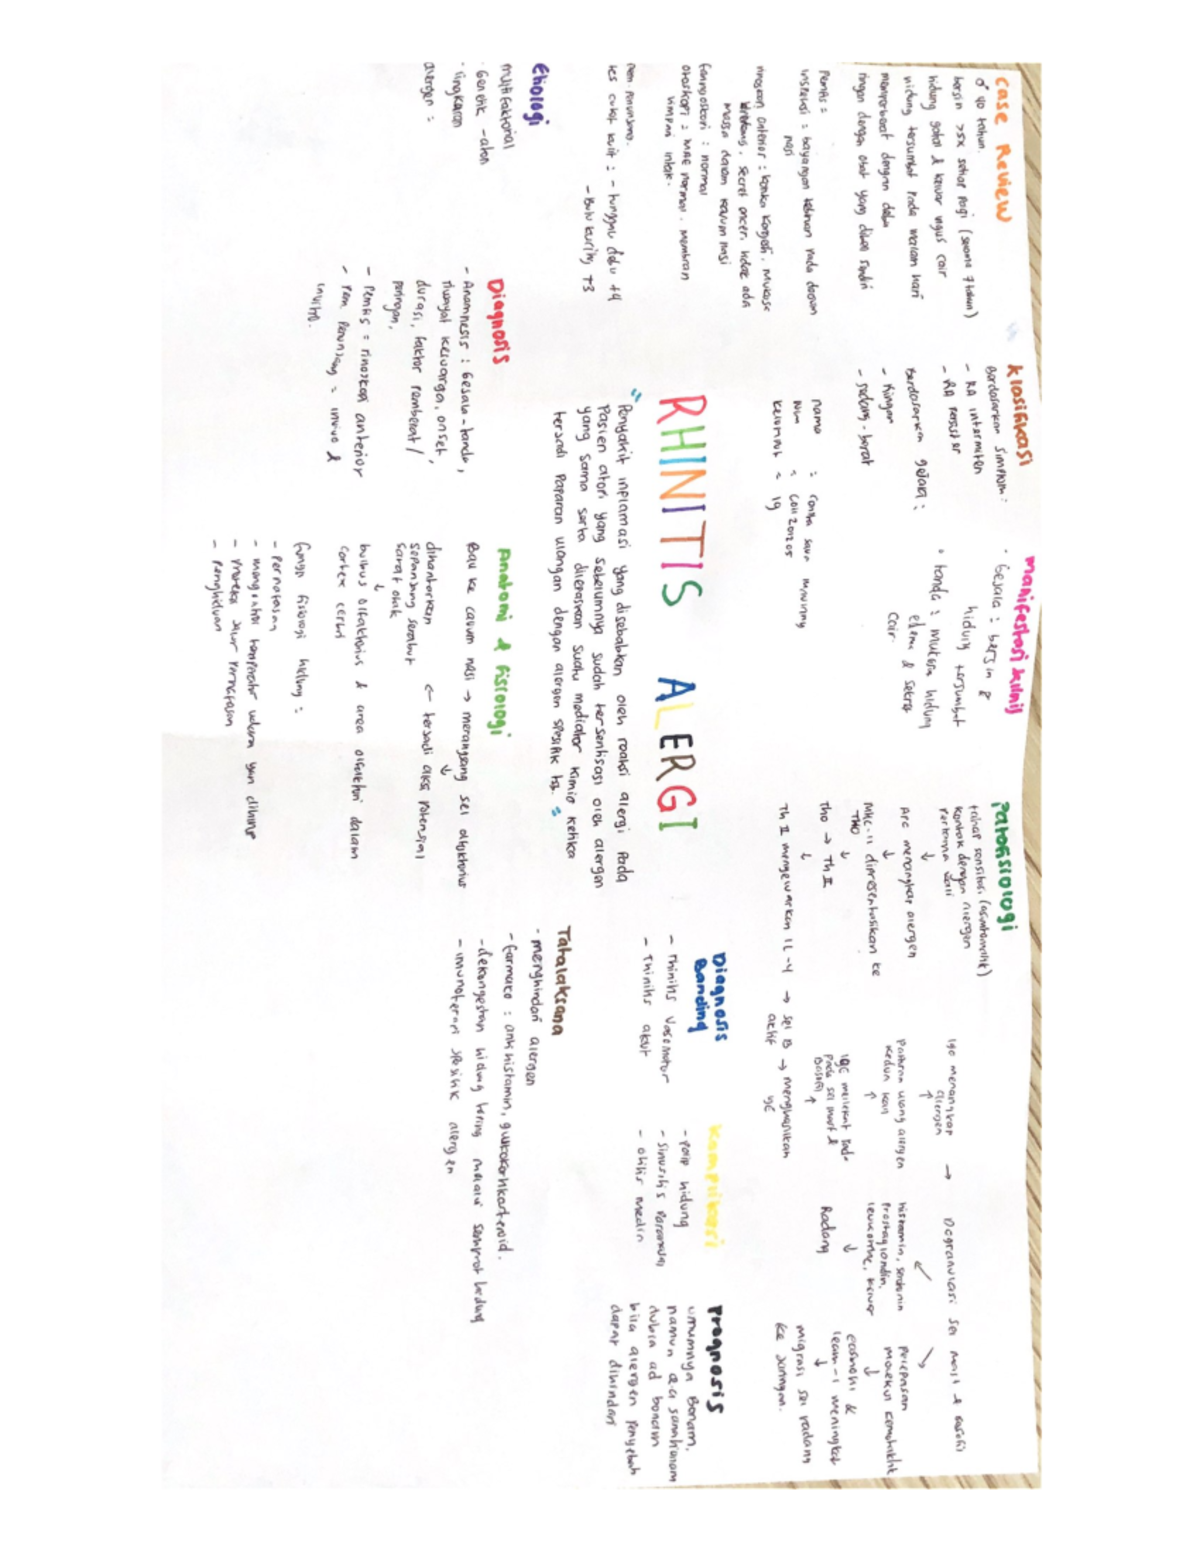 Case Review
♂ 40 tahun.
bersin >5x setiap pagi (selama 7 bulan)
hidung gatal & keluar ingus cair
hidung tersumbat pada malam hari
memperberat dengan debu
ringan dengan obat yang dibeli sendiri
Pemfis =
inspeksi : bayangan kehitaman pada dasar
nasi
rinoskopi anterior : konka kongesti, mukosa
secret encer, tidak ada
massa dalam kavum nasi
faringoskopi : normal
otoskopi : MAE normal, membran
timpani intak.
pem. penunjang.
tes cukit kulit : - tungau debu +4
- Bulu kucing +3
Klasifikasi
Berdasarkan simptom :
- RA intermiten
- RA persister
Berdasarkan gejala :
- Ringan
- sedang - berat
Manifestasi klinis
· Gejala : bersin 2
hidung tersumbat
· tanda : mukosa hidung
edema & sekret
cair.
Patofisiologi
tahap sensitisasi (asimtomatik)
kontak dengan alergen
pertama kali
↓
APC menangkap alergen
↓
MHC-II dipresentasikan ke
THO
↓
Tho → Th II
↓
Th II mengeluarkan IL-4 → sel B → menghasilkan
aktif IgE
IgE melekat pad-
pada sel mast &
basofil
↑
paparan ulang alergen
kedua kali
↑
IgE menangkap →
alergen
Degranulasi sel mast & basofil
Histamin, serotonin
Prostaglandin,
leukotrine, keluar
↓
Radang
Pelepasan
molekul kemotaktik
↓
eosinofil &
lecam-1 meningkat
↓
migrasi sel radang
ke jaringan.
nama :
nim :
kelompok = 19
RHINITIS ALERGI
"Penyakit inflamasi yang disebabkan oleh reaksi alergi pada
pasien atopi yang sebelumnya sudah tersensitisasi oleh alergen
yang sama serta dilepaskan suatu mediator kimia ketika
terjadi paparan ulangan dengan alergen spesifik tsb."
Diagnosis
Banding
- rhinitis vasomotor
- rhinitis akut
Komplikasi
- polip hidung
- sinusitis paranasal
- otitis media
Prognosis
umumnya Bonam.
namun
dubia ad bonam
bila alergen penyebab
dapat dihindari
Etiologi
multifaktorial
· Genetik - atopi
· lingkungan
alergen =
Diagnosis
- Anamnesis : Gejala-tanda,
riwayat keluarga, onset,
durasi, faktor pemberat/
peringan.
- Pemfis = rinoskopi anterior
- Pem. penunjang = invivo &
invitro.
Anatomi & fisiologi
Bau ke cavum nasi → merangsang sel olfaktorius
↓
dihantarkan ← terjadi aksi potensial
sepanjang serabut
saraf otak
↓
bulbus olfaktorius & area olfaktori dalam
cortex cerbri
fungsi fisiologi hidung :
- pernafasan
- mengontrol temperatur udara yan dihirup
- proteksi jalur pernafasan
- penghiduan
Tatalaksana
- menghindari alergen
- farmako : antihistamin, glukokortikosteroid.
- dekongestan hidung kering melalui semprot hidung
- imunoterapi spesifik alergen